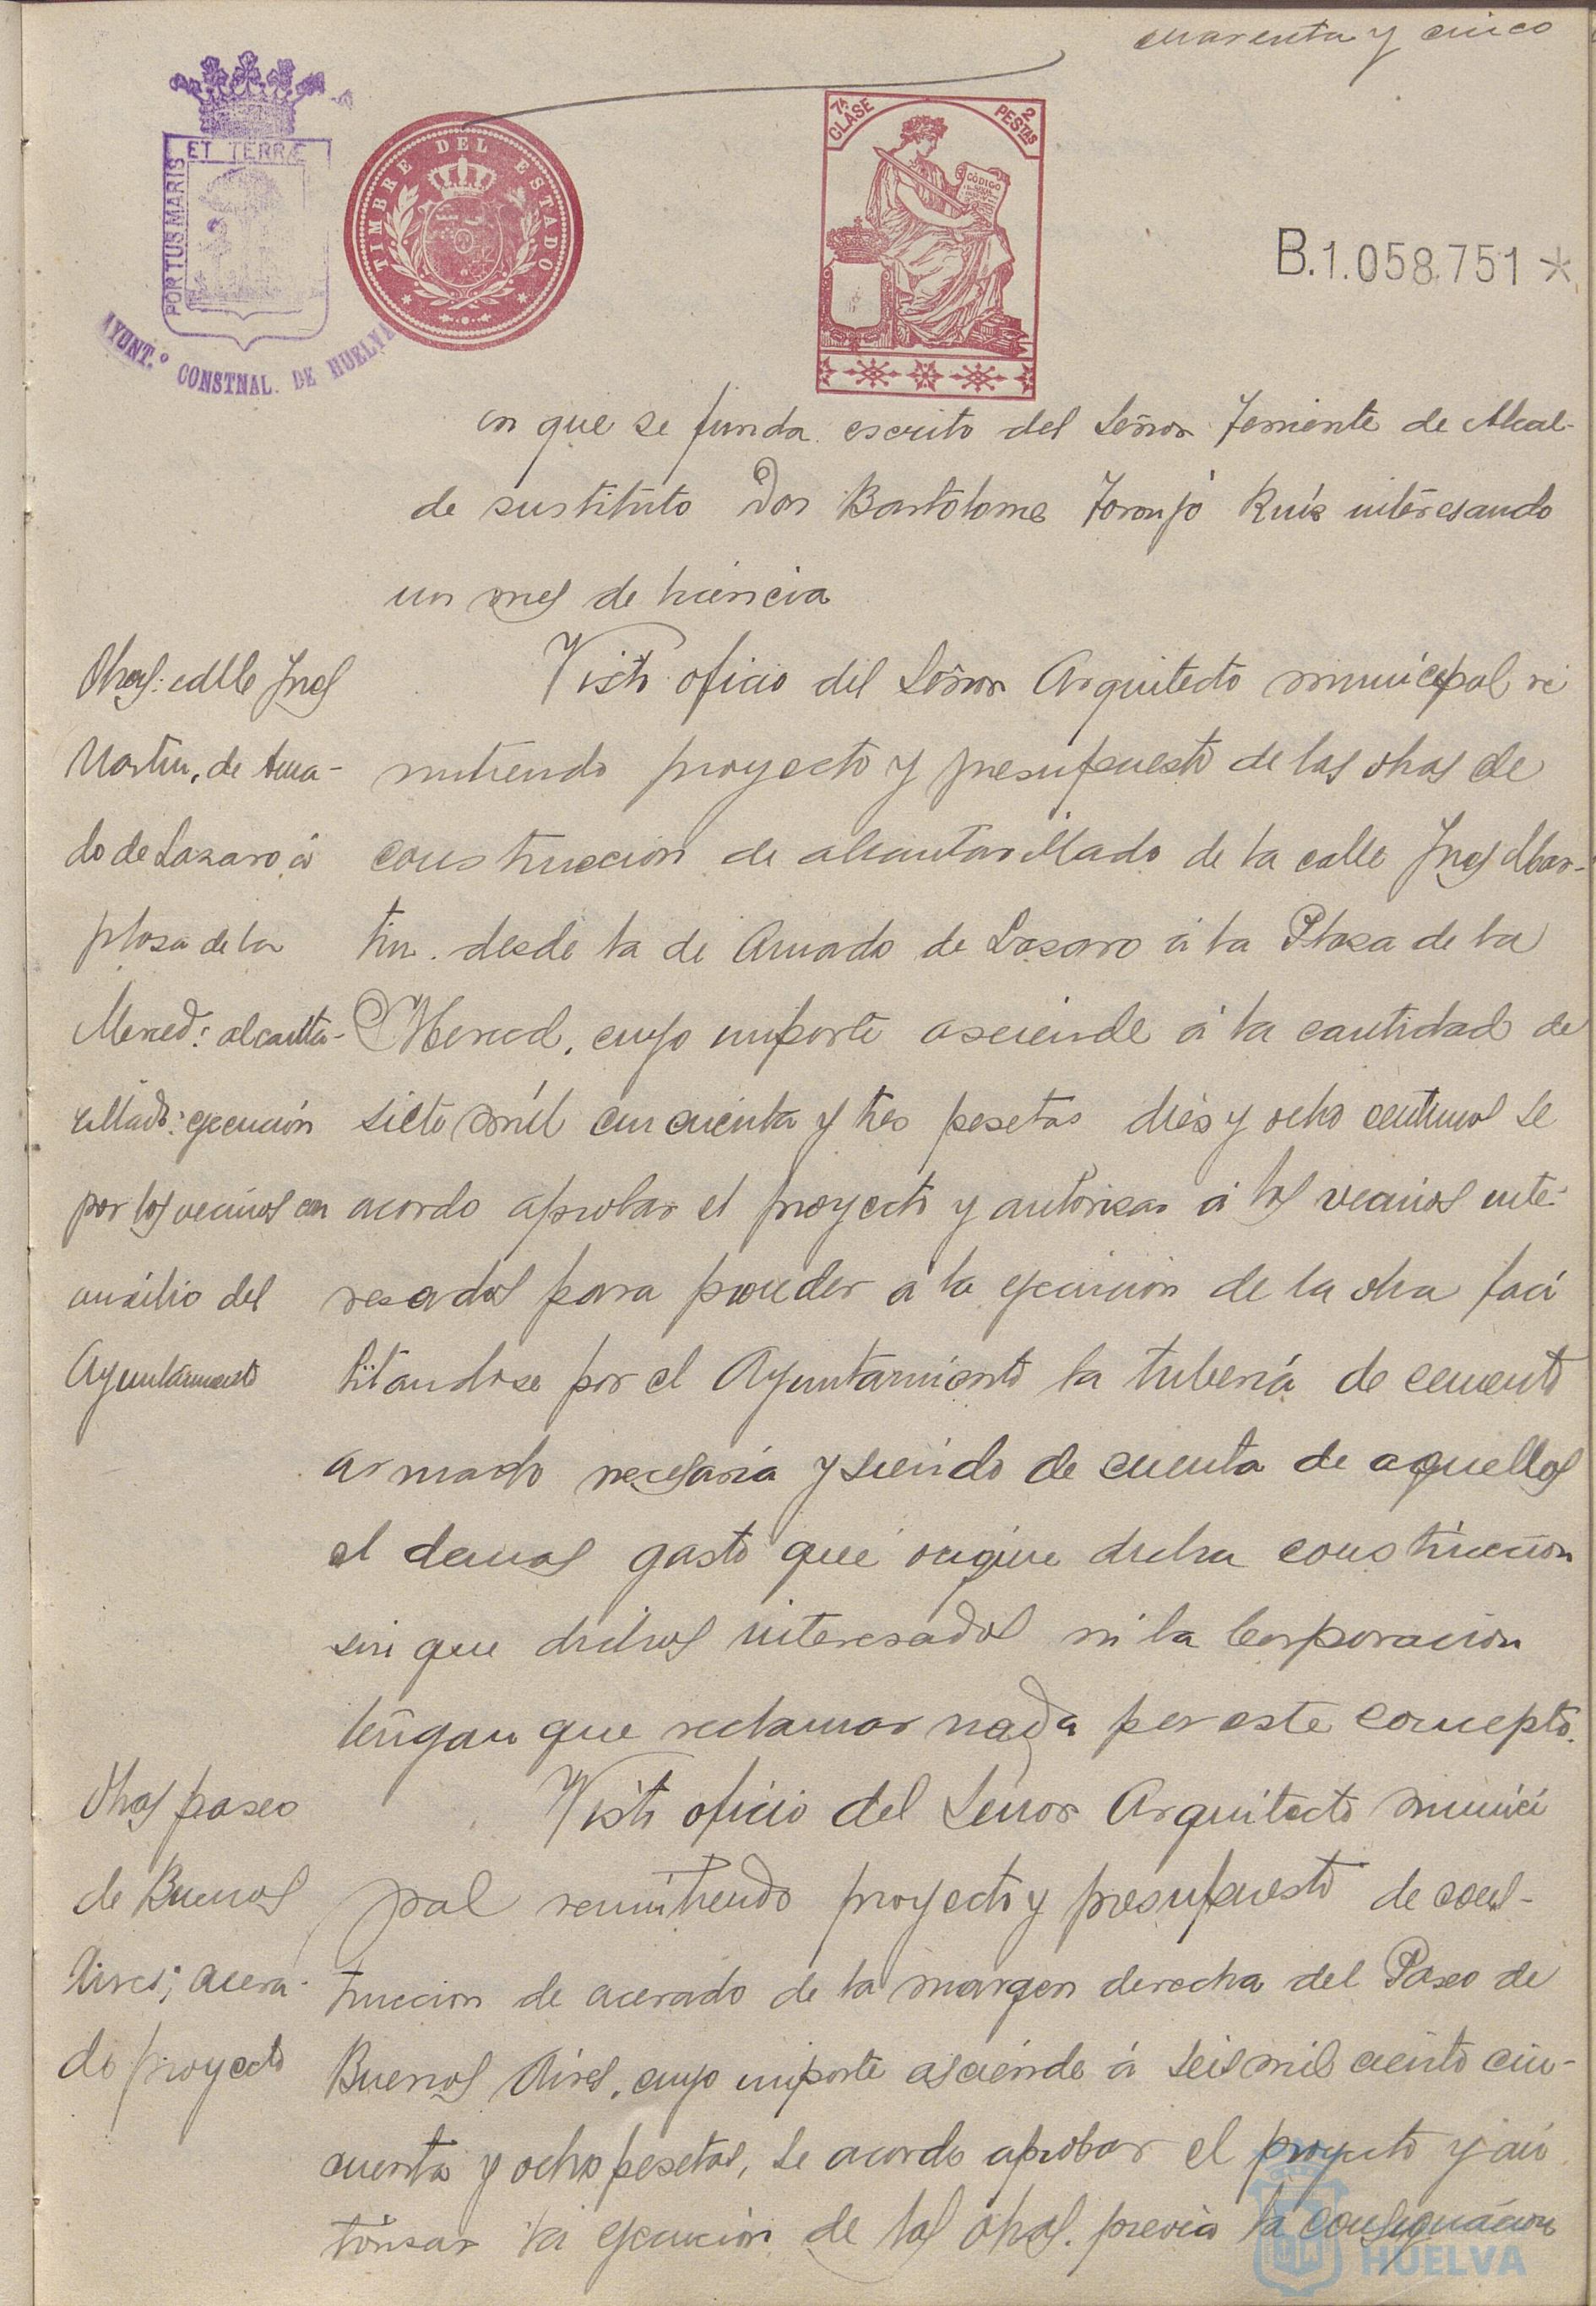 cuarenta y cinco
ET TERRÆ
PORTUS MARIS
AYUNT.º CONSTNAL. DE HUELVA
TIMBRE DEL ESTADO
7ª CLASE
2 PESTAS
CÓDIGO
B.1.058.751*
en que se funda escrito del Señor Teniente de Alcal-
de sustituto Don Bartolome Toronjo Ruiz interesando
un mes de licencia
Obras: calle Ines
Martin, de Ama-
do de Lazaro á
plaza de la
Merced: alcanta-
rillado: ejecución
por los vecinos con
auxilio del
Ayuntamiento
Visto oficio del Señor Arquitecto municipal re
mitiendo proyecto y presupuesto de las obras de
construccion de alcantarillado de la calle Ines Mar-
tin. desde la de Amado de Lazaro á la Plaza de la
Merced, cuyo importe asciende á la cantidad de
siete mil cincuenta y tres pesetas dies y ocho centimos se
acordo aprobar el proyecto y autorizar á los vecinos inte-
resados para proceder a la ejecucion de la obra faci
litandose por el Ayuntamiento la tuberia de cemento
armado necesaria y siendo de cuenta de aquellos
el demas gasto que origine dicha construccion
sin que dichos interesados ni la Corporacion
tengan que reclamar nada por este concepto.
Obras paseo
de Buenos
Aires; acera-
do proyecto
Visto oficio del Señor Arquitecto munici
pal remitiendo proyecto y presupuesto de cons-
truccion de acerado de la margen derecha del Paseo de
Buenos Aires, cuyo importe asciende á seis mil ciento cin-
cuenta y ocho pesetas, se acordo aprobar el proyecto y au
torizar la ejecucion de las obras. previa la consignacion
HUELVA